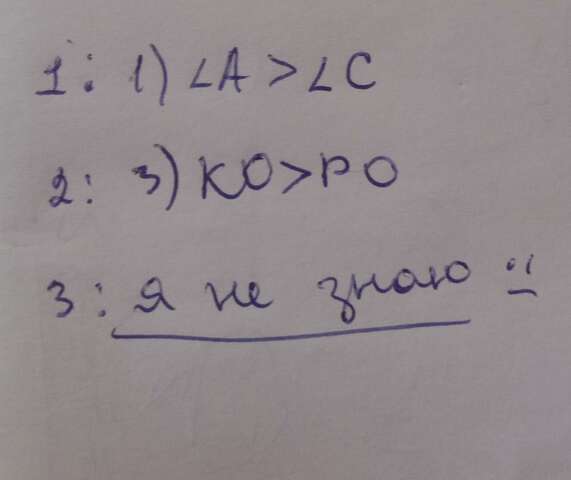 1: 1) ∠A > ∠C
2: 3) KO > PO
3: я не знаю :|